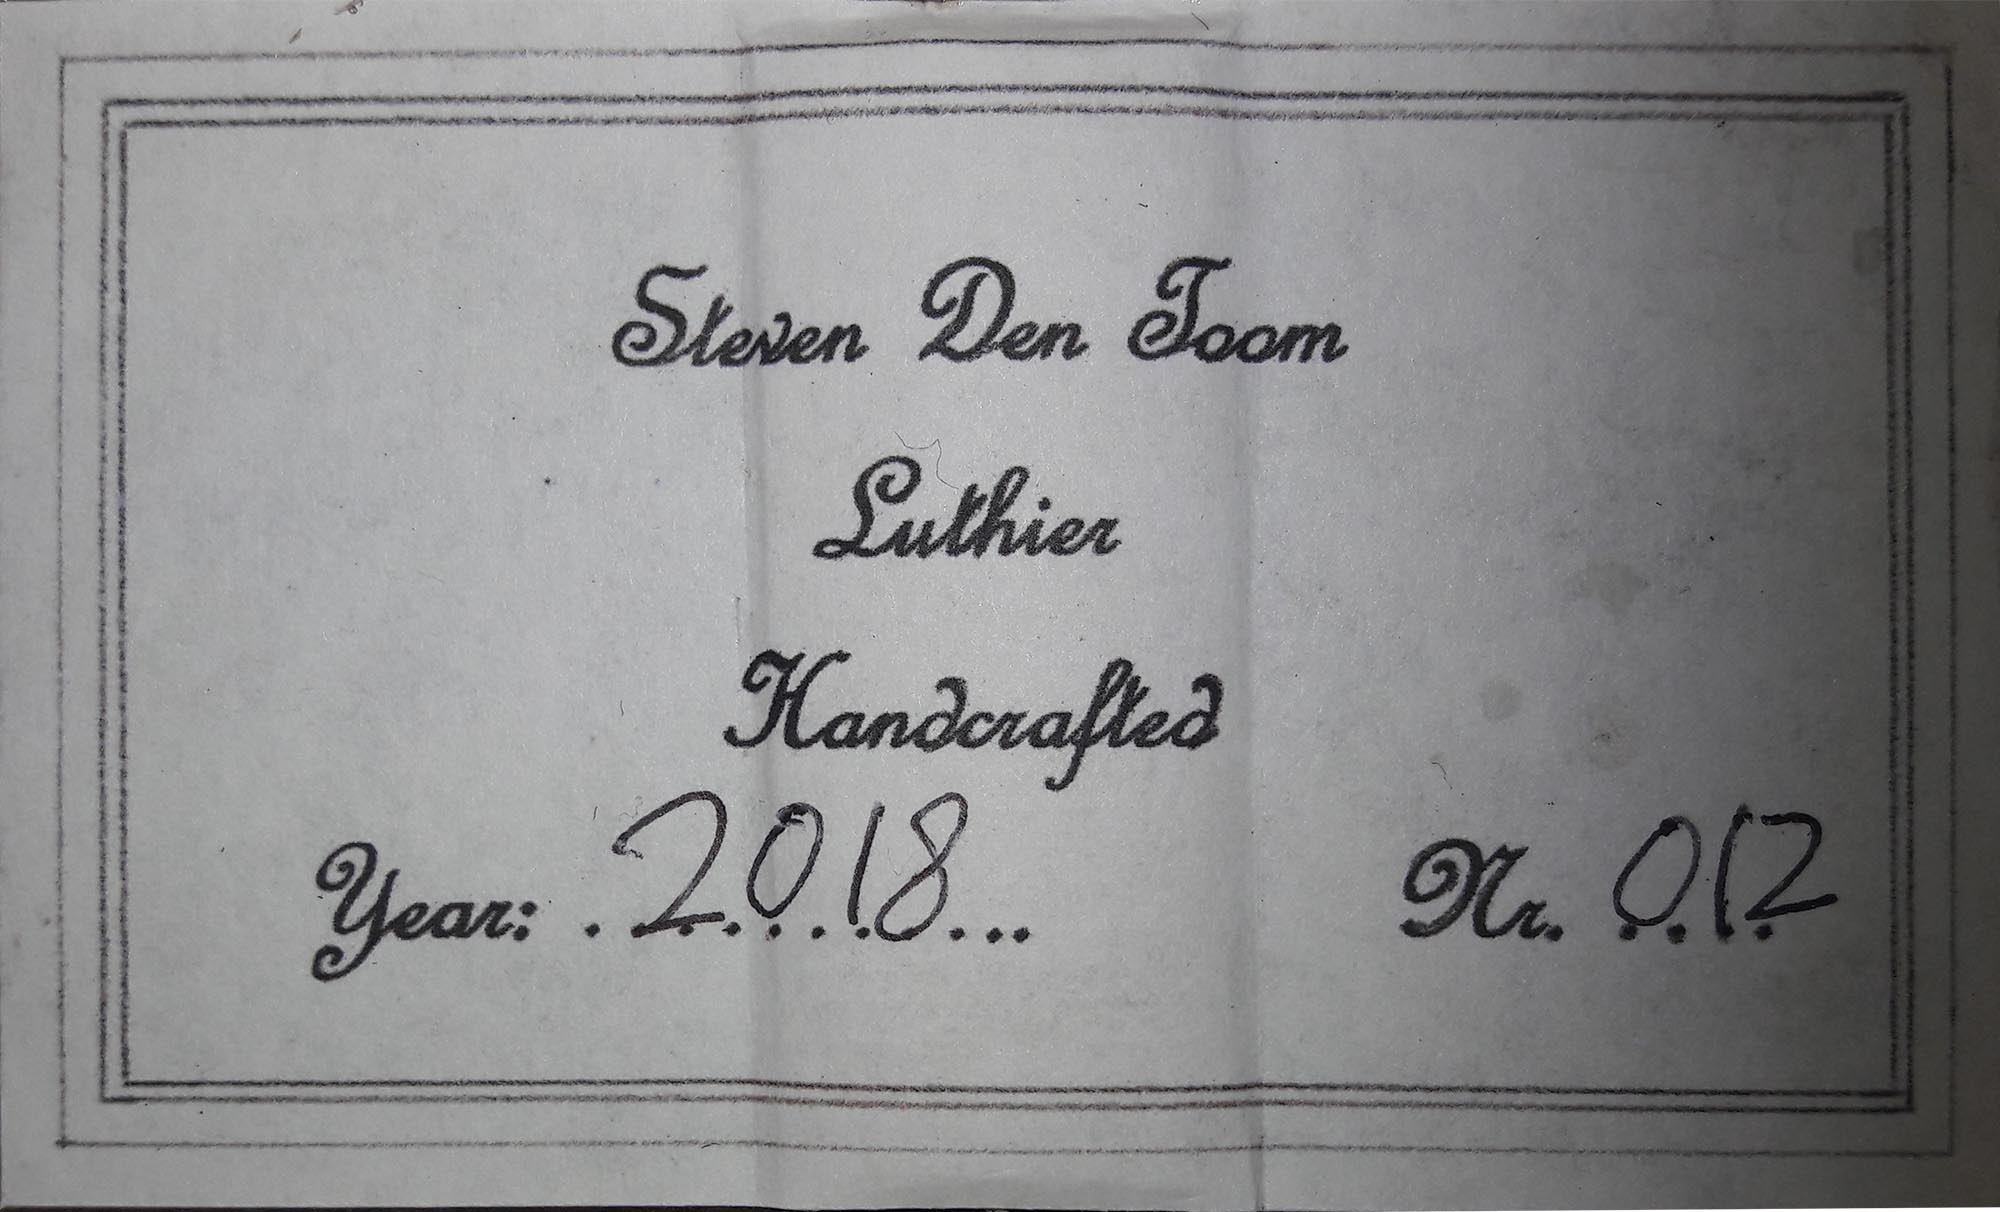 Steven Den Toom
Luthier
Handcrafted
Year: ..2018... Nr. 012